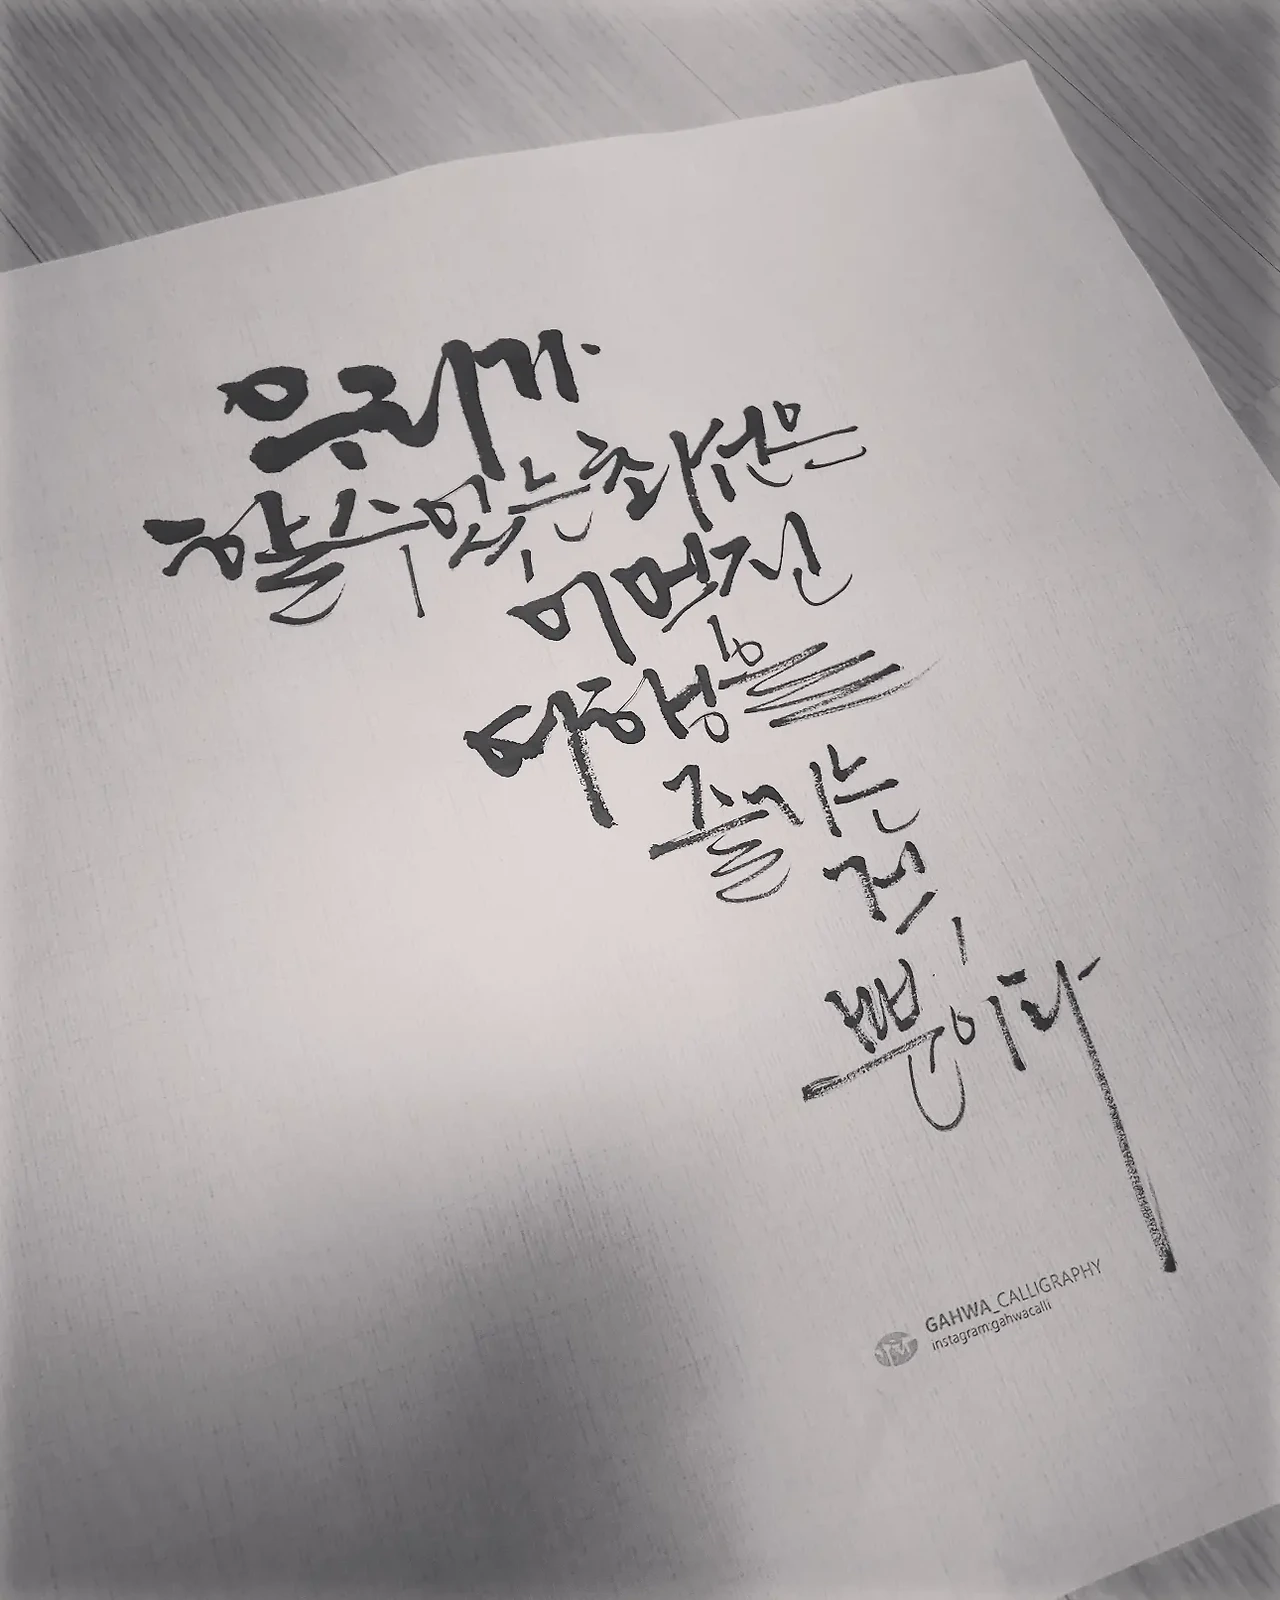 우리가
할 수 있는 최선은
이 멋진
여행을
즐기는
것
뿐이다
GAHWA_CALLIGRAPHY
instagram:gahwacalli